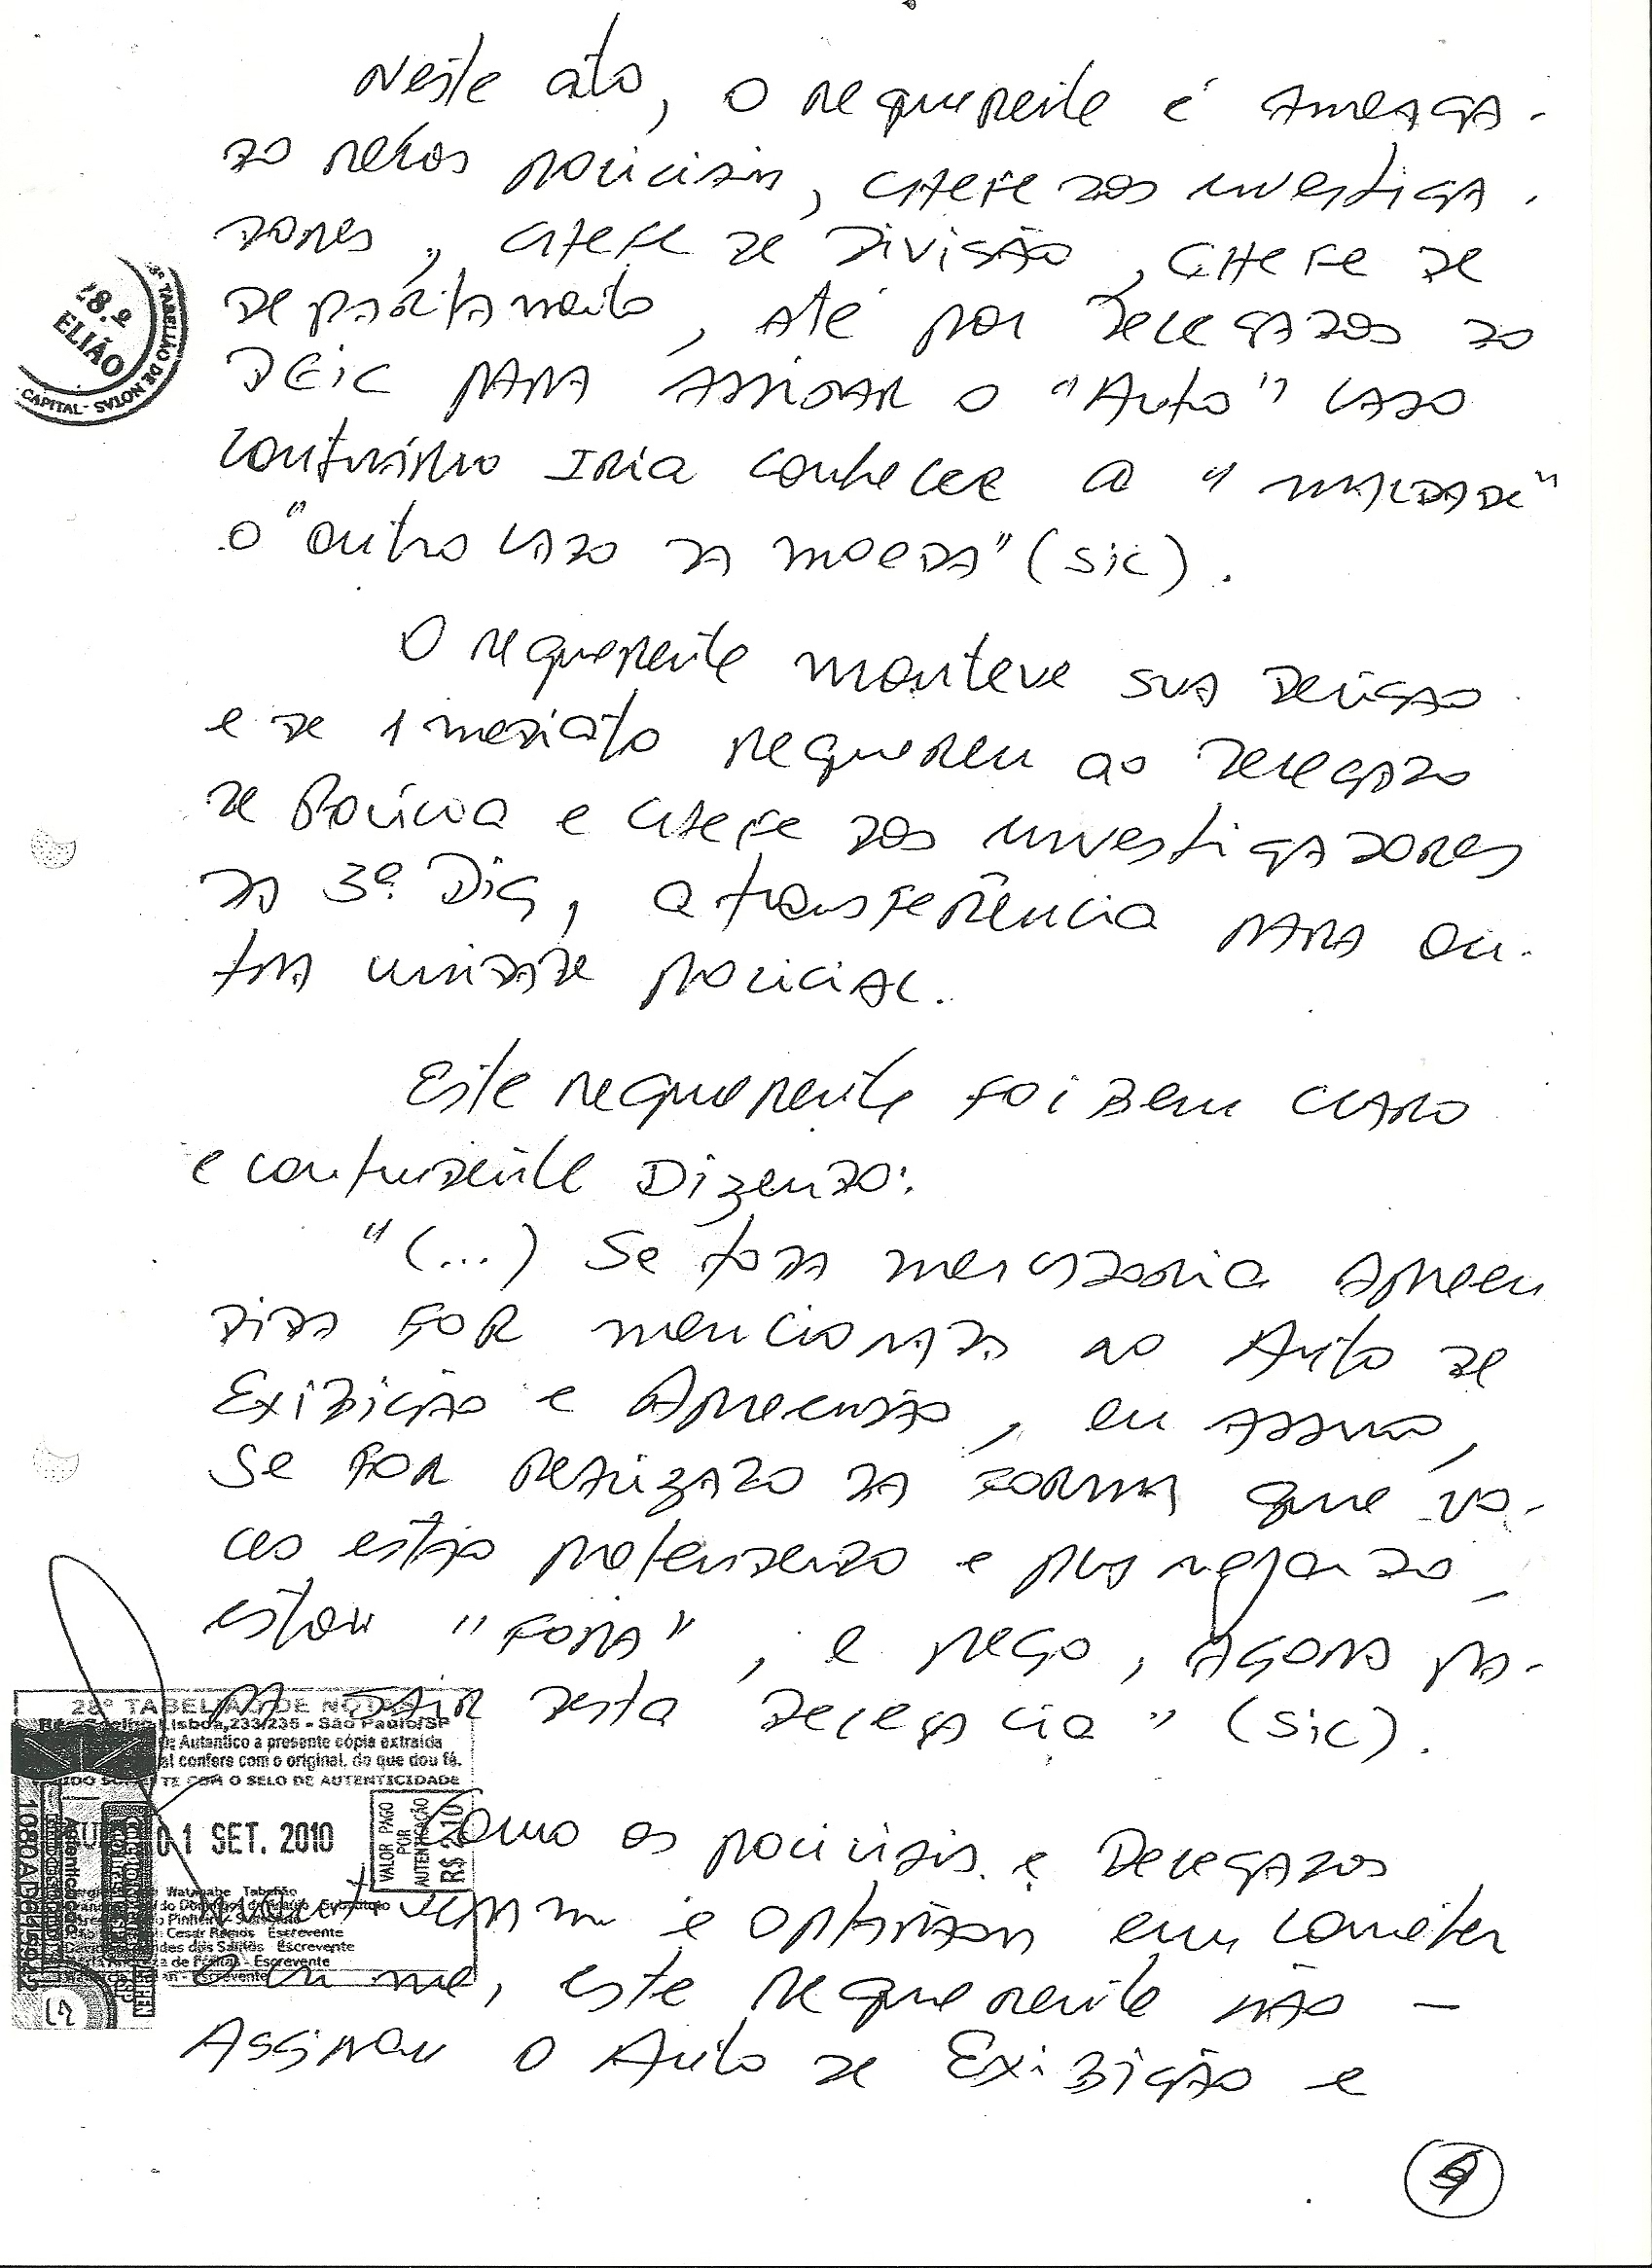 Neste ato, o requerente é ameaça-
do pelos policiais, chefe dos investiga-
dores, chefe de Divisão, chefe de
departamento, até por delegados do
DEIC para assinar o "Auto" caso
contrário iria conhecer a "maldade"
o "outro lado da moeda" (sic).
O requerente manteve sua decisão
e de imediato requereu ao delegado
de Polícia e chefe dos investigadores
da 3ª Dig, a transferência para ou-
tra unidade policial.
Este requerente foi bem claro
e contundente dizendo:
"(...) Se toda mercadoria apreen
dida for mencionada no Auto de
Exibição e Apreensão, eu assino,
se for realizado da forma que vo-
ces estão pretendendo e
estou "fora", e peço, agora pa-
ra sair desta delegacia" (sic).
Como os policiais e Delegados
mantiveram e optaram em cometer
crime, este requerente não -
Assinou o Auto de Exibição e
28.º
ELIÃO
8º TABELIÃO DE NOTAS
CAPITAL
28º TABELIÃO DE NOTAS
Lisboa, 233/235 - São Paulo/SP
Autentico a presente cópia extraída
confere com o original, do que dou fé.
TE COM O SELO DE AUTENTICIDADE
01 SET. 2010
VALOR PAGO
POR
AUTENTICAÇÃO
R$ 2,10
Watanabe Tabelião
Cesar Ramos Escrevente
des dos Santos Escrevente
a de Freitas - Escrevente
Escrevente
9